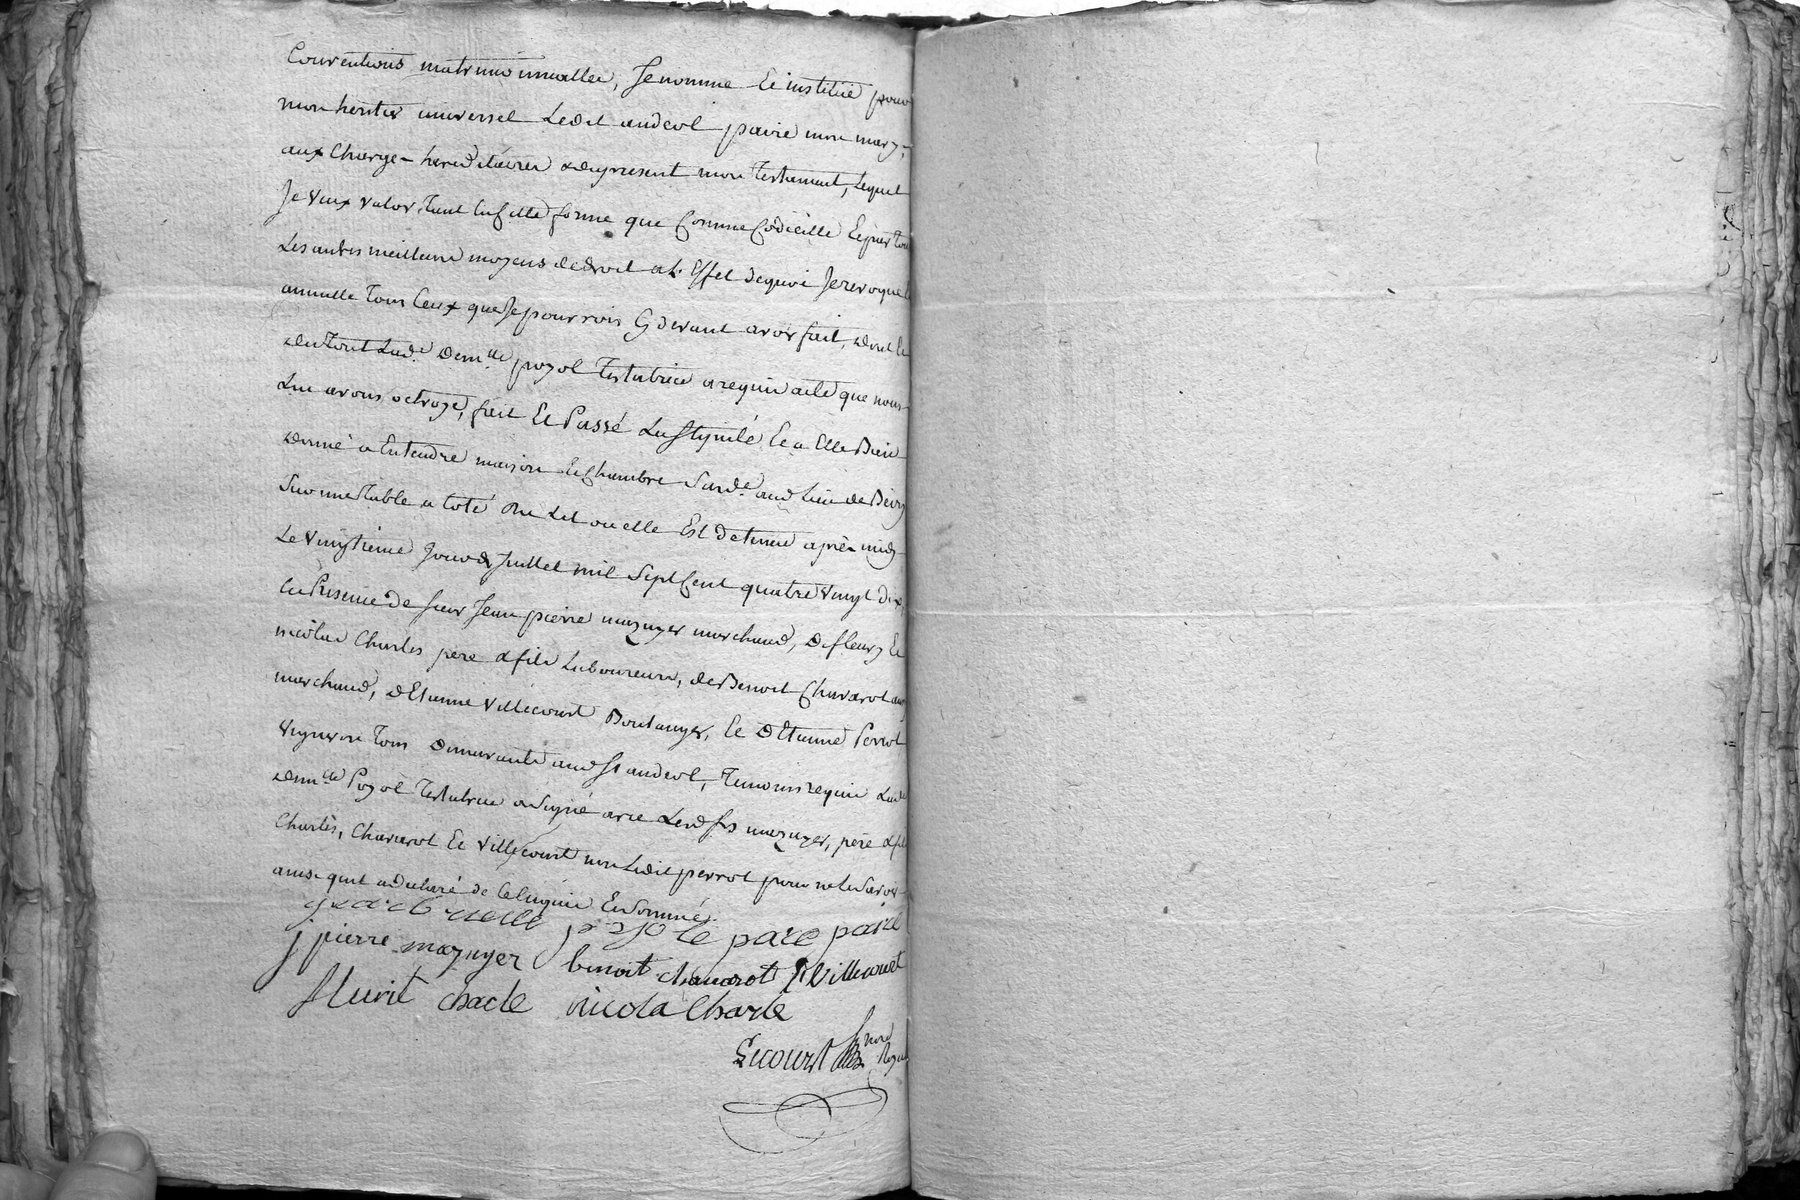 Conventions matrimonnialles, Je nomme Et institüe pour
mon heritier universel Ledit andeol pavie mon mary,
aux Charges hereditaires du present mon Testament, Lequel
Je veux valoir Tant En cette forme que Comme Codicille Et par tou
Les autres meilleurs moyens de droit a L'Effet de quoi Je revoque Et
annulle Tous Ceux que Je pourrois Cy devant avoir fait, dont Et
du Tout Lad.e Dem.lle poyol Testatrice a requis acte que nous
Lui avons octroyé, fait Et Passé Lu Stipulé Et a Elle Bien
donné a Entendre maison Et Chambre Sus d.e aud Lieu de
Sur une Table a coté du Lit ou elle Est detenue après midy
Le vingtieme Jour de Juillet mil Sept Cent quatre vingt dix
En Presence de Sieur Jean pierre mazuyer marchand, de fleury Et
nicolas Charles pere & fils Laboureurs, de Benoit Chavarot aussy
marchand, d'Etienne Villecourt Boulanger, Et d'Etienne Perrot
vigneron Tous demeurants aud St andeol, Temoins requis Lad.e
dem.lle Poyol Testatrice a Signé avec Lesd Srs mazuyer, père & fils
Charles, Chavarot Et Villecourt non Ledit perrot pour ne le Savoir
ainsi quil a declaré de Ce Enquis Et Sommé.
j pierre mazuyer benoit chavarot E Villecourt
fleurit charle nicola Charle
Lecourt